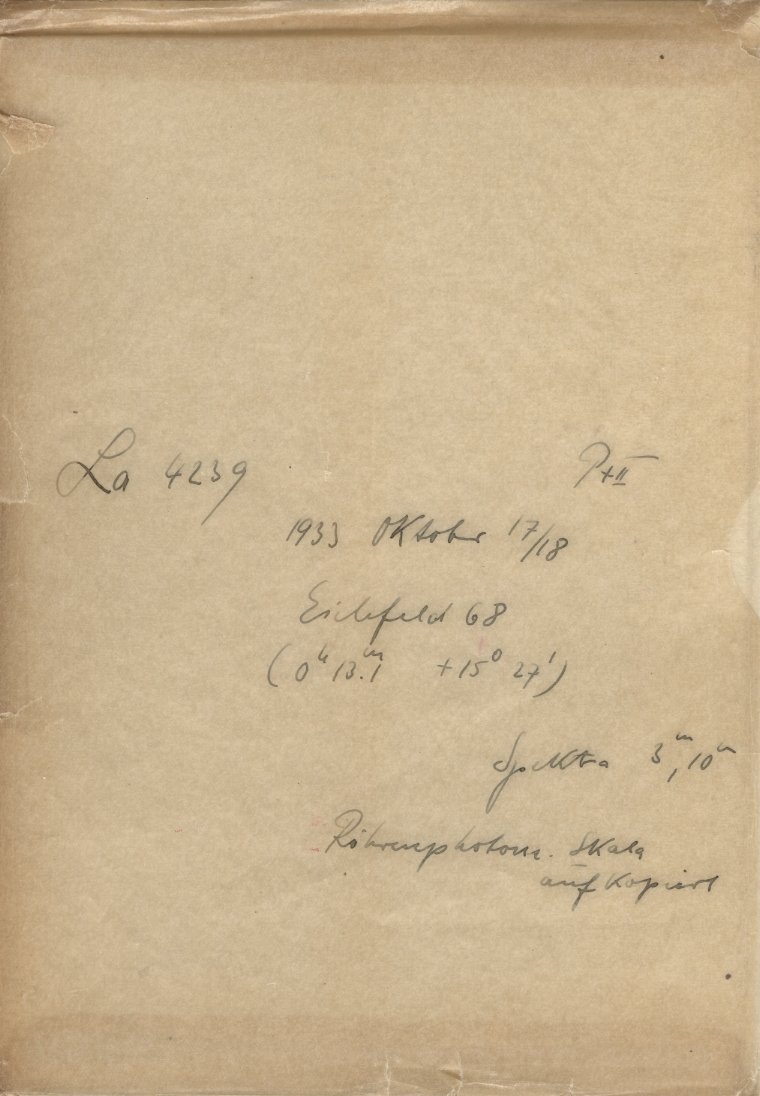 La 4239 P+II
1933 Oktober 17/18
Eichfeld 68
(0ʰ 13.ᵐ1 +15⁰ 27')
Spektra 3ᵐ, 10ᵐ
Röhrenphotom. Skala
aufkopiert